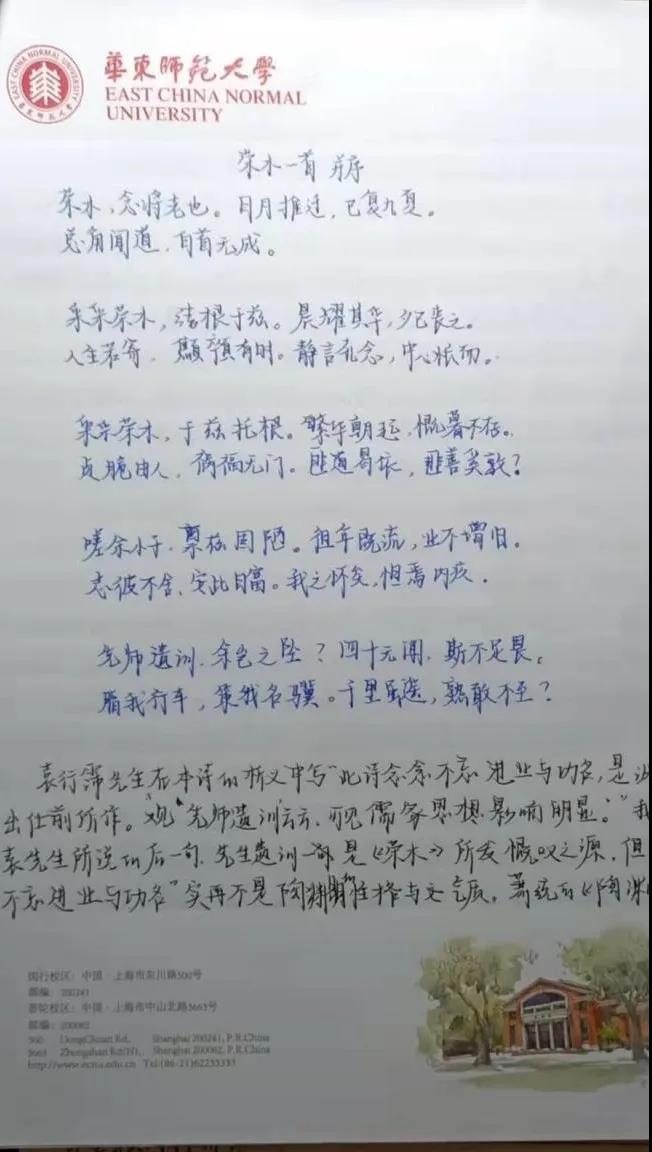 華東師範大學
EAST CHINA NORMAL
UNIVERSITY
EAST CHINA NORMAL UNIVERSITY
荣木一首 并序
荣木，念将老也。日月推迁，已复九夏。
总角闻道，白首无成。
采采荣木，结根于兹。晨耀其华，夕已丧之。
人生若寄，顦顇有时。静言孔念，中心怅而。
采采荣木，于兹托根。繁华朝起，慨暮不存。
贞脆由人，祸福无门。匪道曷依，匪善奚敦？
嗟余小子，禀兹固陋。徂年既流，业不增旧。
志彼不舍，安此日富。我之怀矣，怛焉内疚。
先师遗训，余岂之坠？四十无闻，斯不足畏。
脂我行车，策我名骥。千里虽遥，孰敢不至？
袁行霈先生在本诗的析义中写“此诗念念不忘进业与功名，是
出仕前所作。观“先师遗训”云云，可见儒家思想影响明显。”我
袁先生所说的后一句，先生遗训一部是《荣木》所发慨叹之源，但
不忘进业与功名”实再不是陶渊明性格与文气底，萧统的《陶渊
闵行校区：中国·上海市东川路500号
邮编：200241
普陀校区：中国·上海市中山北路3663号
邮编：200062
500 DongChuan Rd., Shanghai 200241, P.R.China
3663 Zhongshan Rd(N)., Shanghai 200062, P.R.China
http://www.ecnu.edu.cn Tel:(86-21)62233333